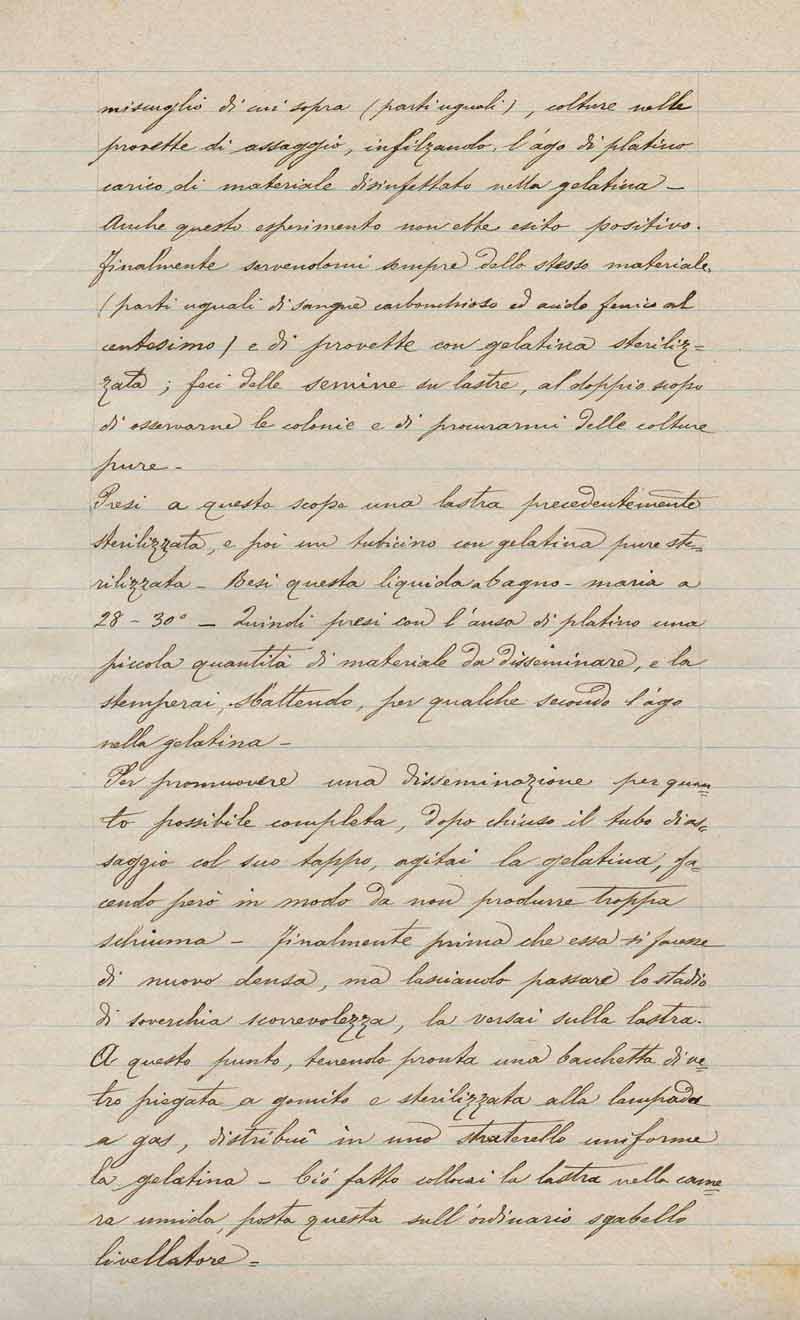 miscuglio di cui sopra (parti uguali), colture nelle
provette di assaggio, infilzando, l'ago di platino
carico di materiale disinfettato nella gelatina —
Anche questo esperimento non ebbe esito positivo.
Finalmente servendomi sempre dello stesso materiale,
(parti uguali di sangue carbonchioso ed acido fenico al
centesimo) e di provette con gelatina steriliz=
zata; feci delle semine su lastre, al doppio scopo
di osservarne le colonie e di procurarmi delle colture
pure —
Presi a questo scopo una lastra precedentemente
sterilizzata, e poi un tubicino con gelatina pure ste=
rilizzata — Resi questa liquida a bagno-maria a
28 - 30° — Quindi presi con l'ansa di platino una
piccola quantità di materiale da disseminare, e la
stemperai, sbattendo, per qualche secondo l'ago
nella gelatina —
Per promuovere una disseminazione per quan=
to possibile completa, dopo chiuso il tubo di as=
saggio col suo tappo, agitai la gelatina, fa=
cendo però in modo da non produrre troppa
schiuma — Finalmente prima che essa si facesse
di nuovo densa, ma lasciando passare lo stadio
di soverchia scorrevolezza, la versai sulla lastra.
A questo punto, tenendo pronta una bacchetta di ve=
tro piegata a gomito e sterilizzata alla lampada
a gas, distribuî in uno straterello uniforme
la gelatina — Ciò fatto collocai la lastra nella came=
ra umida, posta questa sull'ordinario sgabello
livellatore =